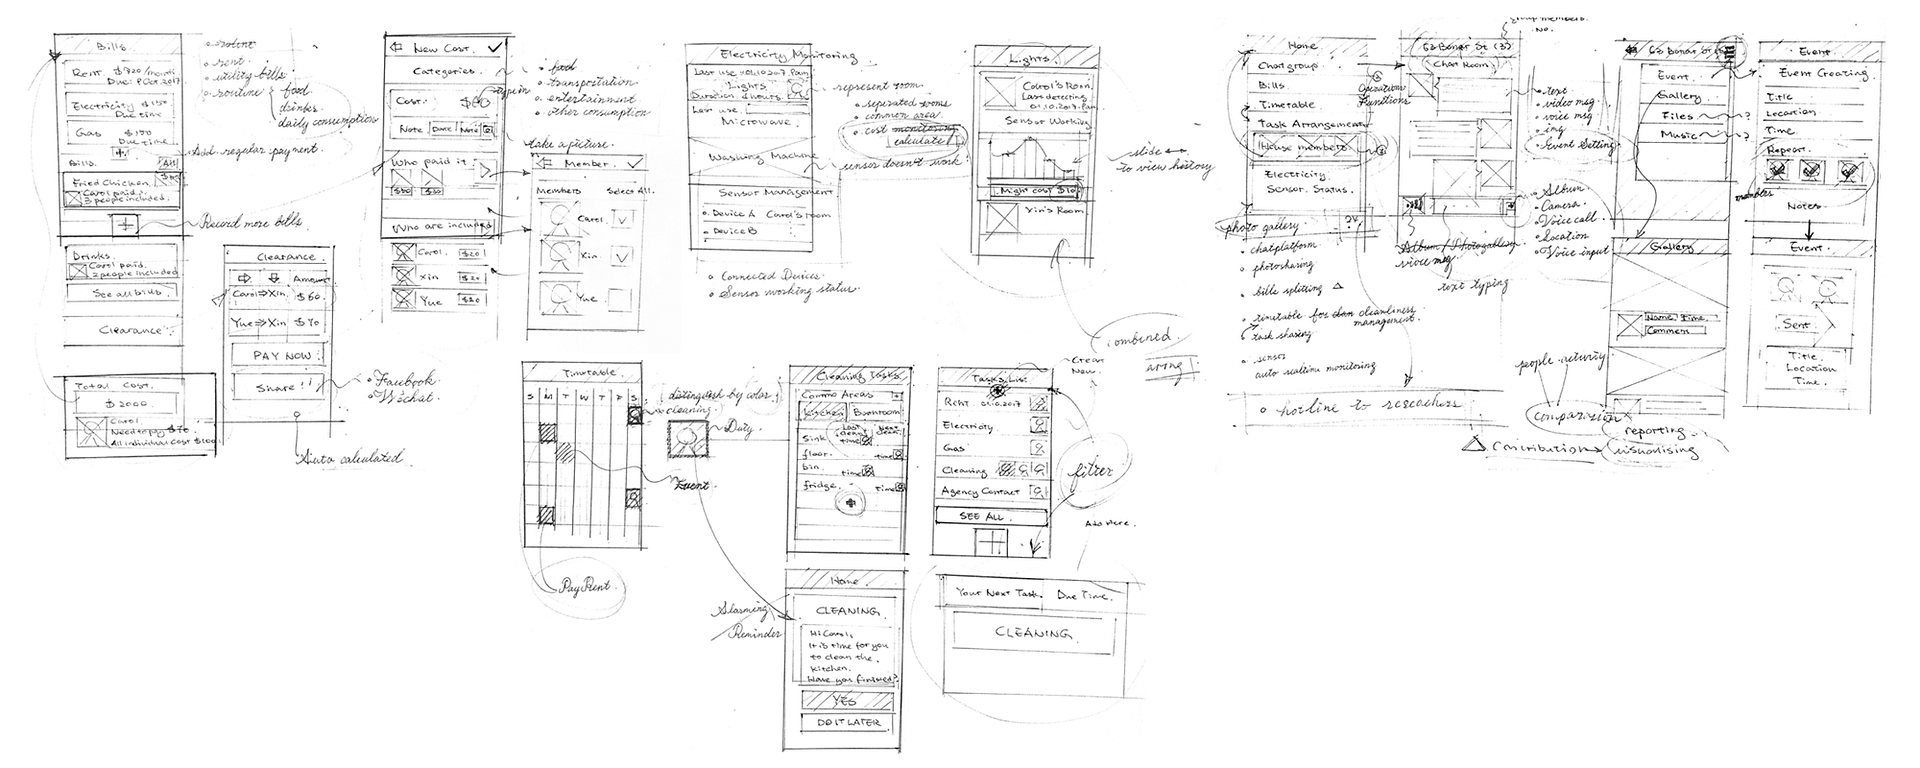 Bills
Rent $720/month
Due: 9 Oct. 2017
Electricity $150
Due time
Gas $100
Due time
Bills.
All
Fried Chicken
Carol paid.
3 people included.
Record more bills.
Drinks.
Carol paid.
2 people included
See all bills.
Clearance
Total Cost.
$2000
Carol
Need to pay $70
All individual cost
rent
utility bills
routine
food
drinks
daily consumption
Add regular payment.
Clearance
Amount
Carol⇒Xin $60
Yue⇒Xin $70
PAY NOW
Share!
Facebook
Wechat.
Auto calculated
New Cost.
Categories
Cost:
type in
Note Date
Who paid it
Who are included
Carol $20
Xin $20
Yue $20
food
transportation
entertainment
other consumption
take a picture.
Member
Members Select All.
Carol
Xin
Yue
Electricity Monitoring
Lights
Duration 2 hours
Last use
Microwave
Washing Machine
Sensor Management
Device A Carol's room
Device B
Connected Devices
Sensor working status.
represent room
seperated rooms
common area
cost monitoring
calculate
sensor doesn't work!
Lights
Carol's Room
Last detecting
Sensor Working
Might cost $10
Xin's Room
slide ↔
to view history
combined
Timetable
S M T W T F S
distinguish by color
cleaning
Duty
Event
Pay Rent
Cleaning Tasks
Kitchen
Sink
floor
bin
fridge
time
Tasks List
Rent 01.10.2017
Electricity
Gas
Cleaning
Agency Contact
SEE ALL
Create
New.
filter
Add Here.
Home
CLEANING.
Hi Carol,
It is time for you
to clean the
kitchen.
Have you finished?
YES
DO IT LATER
Alarming
Reminder
Your Next Task. Due Time.
CLEANING
Home
Chat group
Bills
Timetable
Task Arrangement
House members
Electricity
Sensor Status.
photo gallery
chat platform
photo sharing
bills splitting △
timetable for cleanliness
management.
task sharing
sensor
auto realtime monitoring
hotline to reseachers
group members.
No.
63 Bonar St (3)
Chat Room
Operations
Functions
text
video msg
voice msg
img
Event Setting
Album
Camera
Voice call
Location
Voice input
Album / Photogallery
voice msg.
text typing
63 Bonar St
Event
Gallery
Files ?
Music ?
Gallery
Name. Time.
Comment
people activity
comparision
reporting
△ Contribution → visualising
Event
Event Creating
Title
Location
Time.
Repeat
Notes.
Event
Sent
Title.
Location
Time.